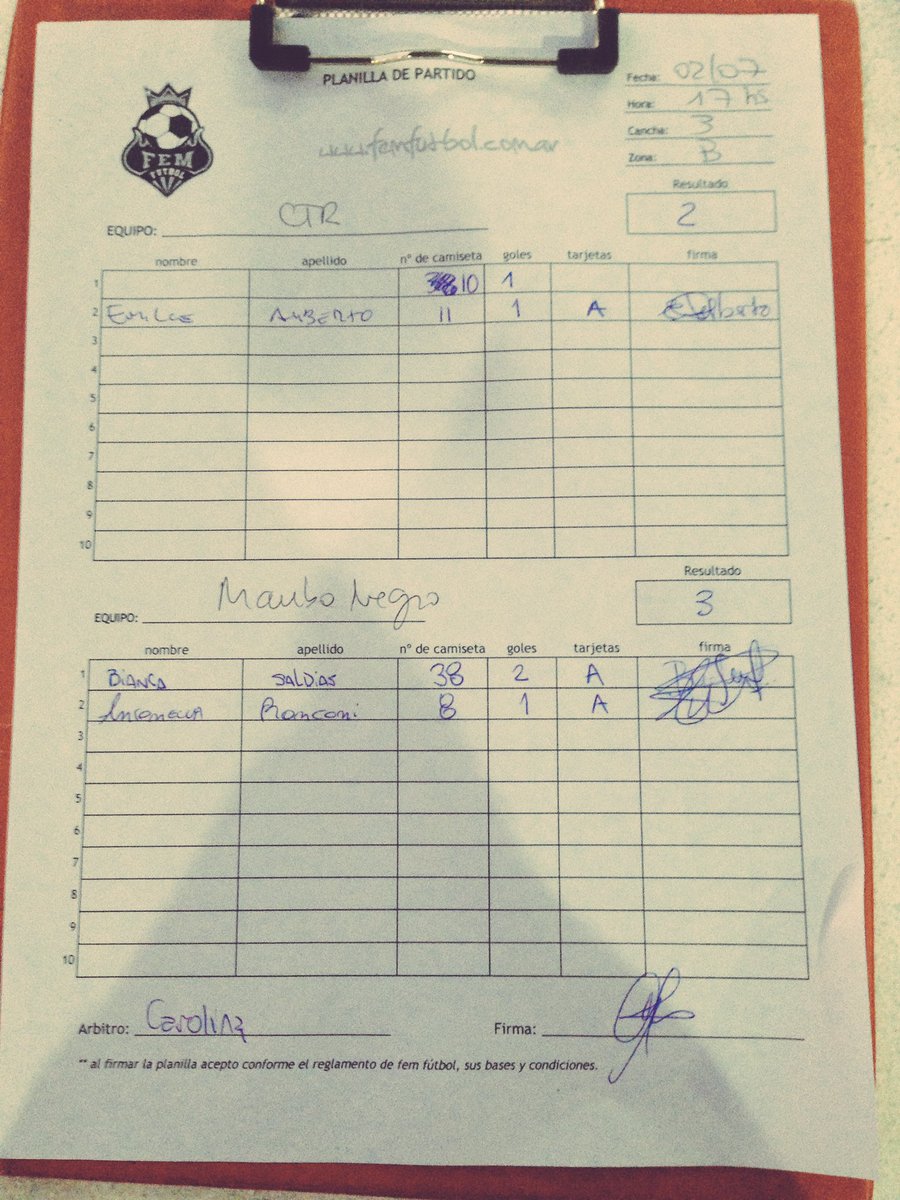 PLANILLA DE PARTIDO
Fecha: 02/07
Hora: 17 hs
Cancha: 3
Zona: B
FEM
FUTBOL
www.femfutbol.com.ar
Resultado
2
EQUIPO: CTR
nombre apellido n° de camiseta goles tarjetas firma
1 10 1
2 Emilce 11 1 A
3
4
5
6
7
8
9
10
Resultado
3
EQUIPO: Mambo Negro
nombre apellido n° de camiseta goles tarjetas firma
1 BiANCA SALDíAS 38 2 A
2 Antonella Ronconi 8 1 A
3
4
5
6
7
8
9
10
Arbitro: Carolina Firma:
** al firmar la planilla acepto conforme el reglamento de fem fútbol, sus bases y condiciones.